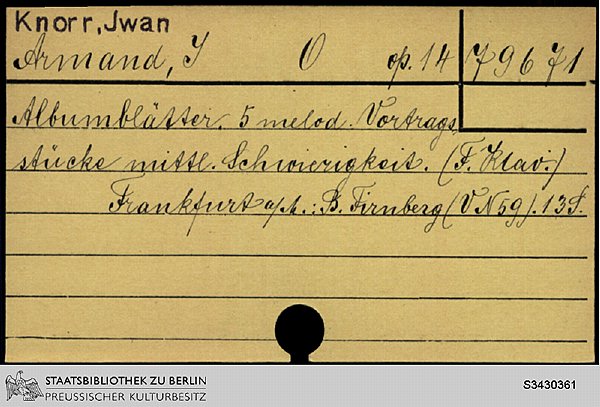 Knorr, Jwan
Armand, J O op. 14 79671
Albumblätter. 5 melod. Vortrags-
stücke mittl. Schwierigkeit. (F. Klav.)
Frankfurt a/M.: B. Firnberg (VN 59). 13 S.
STAATSBIBLIOTHEK ZU BERLIN
PREUSSISCHER KULTURBESITZ
S3430361